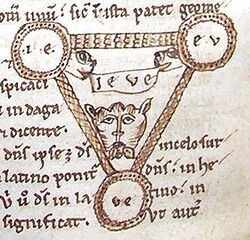 unū: sic ista patet geome
I E
E V
I E V E
spicaci
in daga
dicente.
dn̄s ipse
in celo sur
latino ponit
dn̄s: in he
V E
dn̄s in la
ino: in
significat.